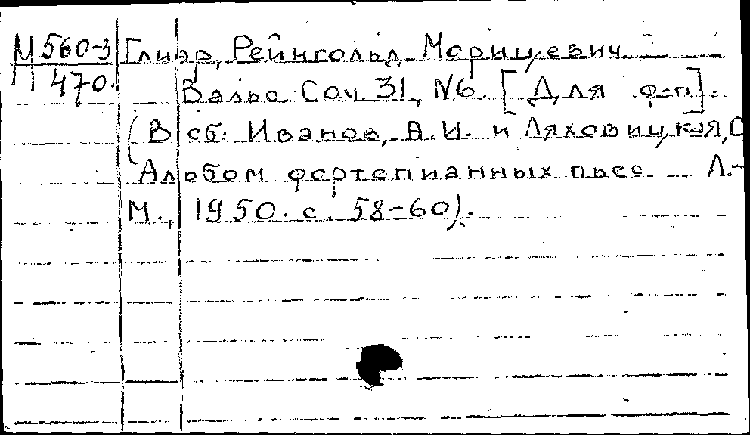 М 560-3 Глиэр, Рейнгольд Морицевич
П 470. Вальс Соч. 31, №6. [Для ф-п].
(В сб: Иванов, А.И. и Ляховицкая, С
Альбом фортепианных пьес. Л.-
М., 1950. с. 58-60).